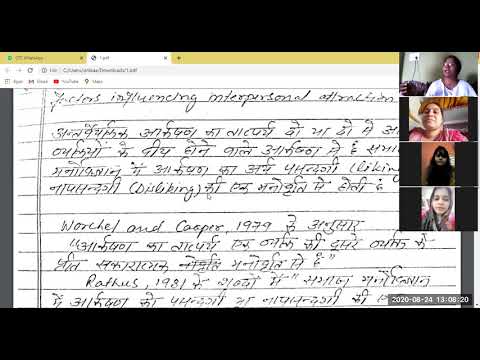 (21) WhatsApp
1.pdf
C:/Users/shilaa/Downloads/1.pdf
Apps
Gmail
YouTube
Maps
Factors influencing interpersonal attraction
अन्तर्वैयक्तिक आकर्षण का तात्पर्य दो या दो से
व्यक्तियों के बीच होने वाले आकर्षण से है
मनोविज्ञान में आकर्षण का अर्थ पसन्दगी (liking)
नापसन्दगी (Disliking) की एक मनोवृति से होती है
Worchel and Cooper, 1979 के अनुसार
"आकर्षण का तात्पर्य एक व्यक्ति की दूसरे व्यक्ति के
प्रति सकारात्मक मनोवृति से है"
Rathus, 1981 के शब्दों में "समाज मनोविज्ञान
में आकर्षण को पसन्दगी या नापसन्दगी की
2020-08-24 13:08:20